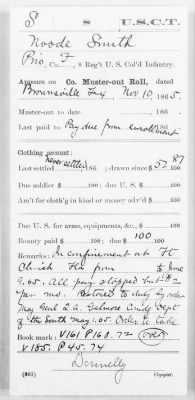 S 8 U.S.C.T.
Noode Smith
Priv, Co. F, 8 Reg't U. S. Col'd Infantry.
Appears on Co. Muster-out Roll, dated
Brownsville Tex, Nov 10, 1865.
Muster-out to date , 186 .
Last paid to Pay due from enrollment
Clothing account:
Last settled never settled, 186 ; drawn since $ 57 87/100
Due soldier $ /100; due U. S. $ /100
Am't for cloth'g in kind or money adv'd $ /100
Due U. S. for arms, equipments, &c., $ /100
Bounty paid $ /100; due $ 100 /100
Remarks: In confinement at Ft
from to June
9.65. All pay stopped but
per mo. Restored to duty by order
Maj Genl Q.A. Gilmore Comdg Dept
of the South May 1.65. Order to take
Book mark: V161 P168.72 (over)
V185. P45.74
Donnelly
(361) Copyist.